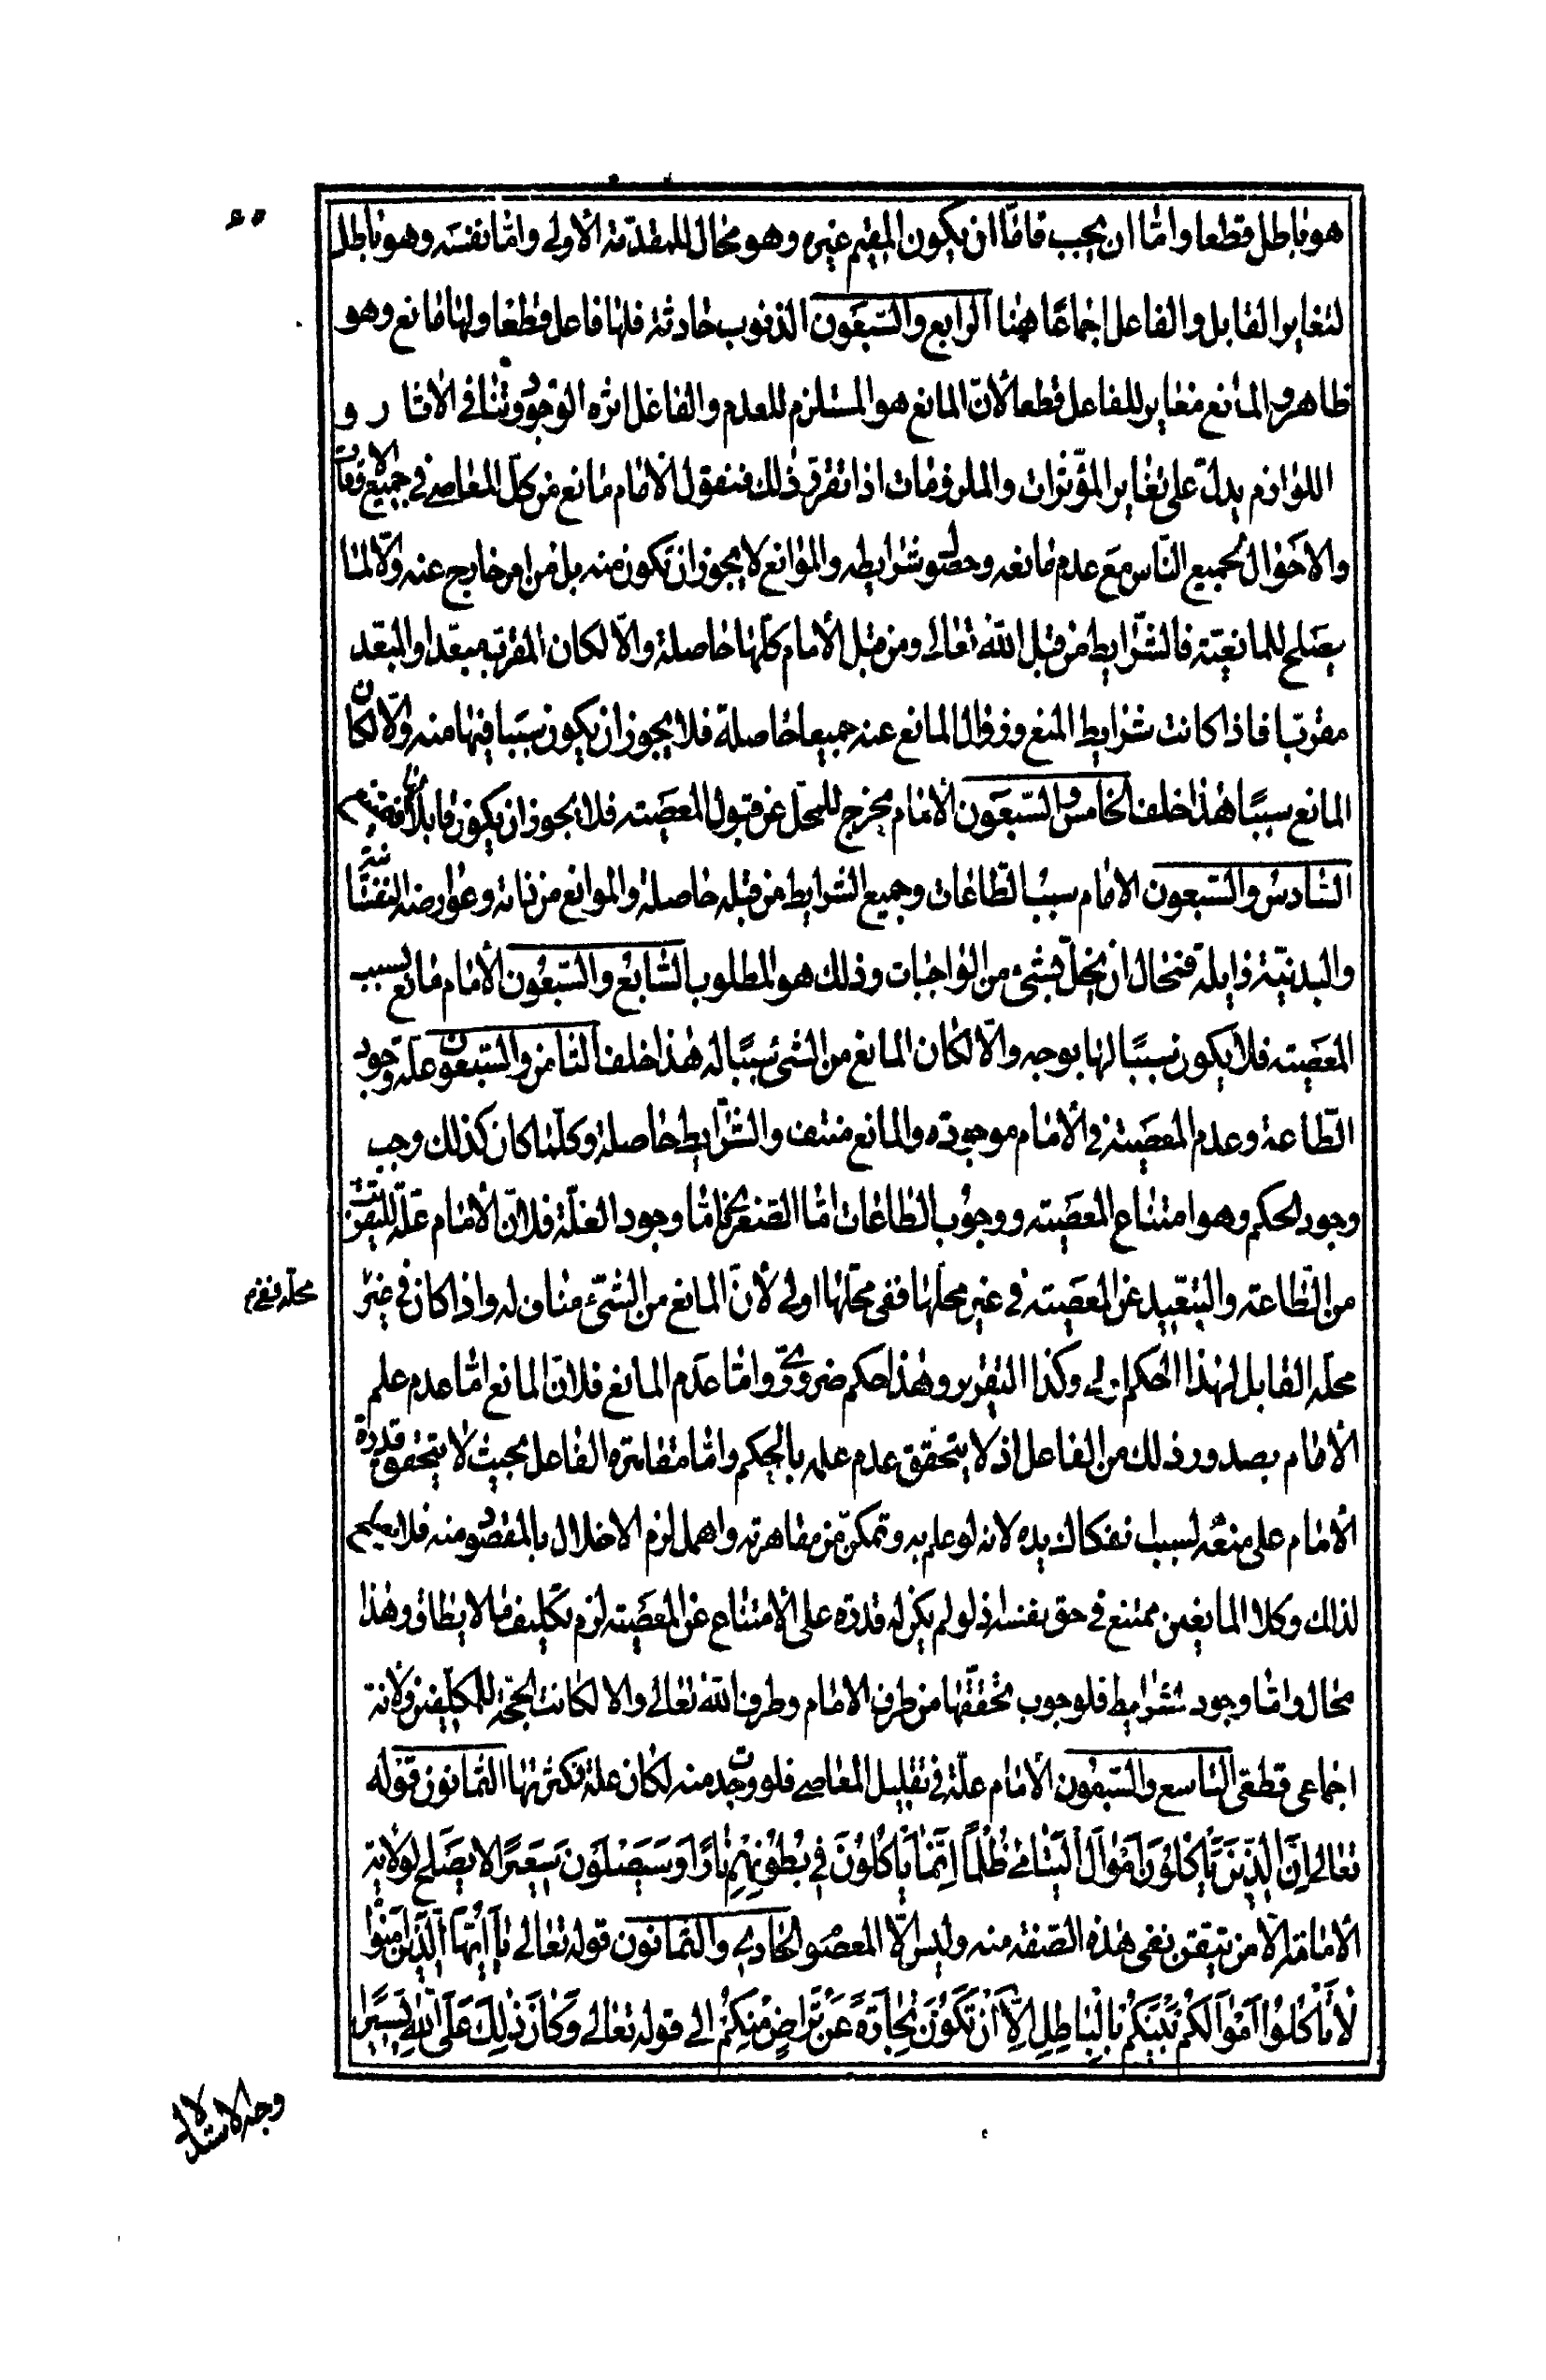 هو باطل قطعا واما ان يجب فامّا ان يكون المقيم غيره وهو محال للمقدّمة الأولى وامّا نفسه وهو باطل
لتغاير القابل والفاعل اجماعًا هنا الرابع والسّبعون الذنوب حادثة فلها فاعل قطعا ولها مانع وهو
ظاهر والمانع مغاير للفاعل قطعا لأنّ المانع هو المستلزم للعدم والفاعل اثره الوجود وتنافى الاثار و
اللوازم يدلّ على تغاير المؤثّرات والملزومات اذا تقرّر ذلك فنقول الأمام مانع من كلّ المعاصى فى جميع الاوقات
والاحوال لجميع النّاس مع عدم مانعه وحصول شرايطه والموانع لا يجوز ان تكون منه بل من امر خارج عنه والّا لما
يصلح للمانعيّة فالشّرايط من قبل الله تعالى ومن قبل الأمام كلّها حاصلة والّا لكان المقرّب مبعدا والمبعد
مقرّبا فاذا كانت شرايط المنع وزوال المانع عنه جميعا حاصلة فلا يجوز ان يكون سببا فيها منه والّا لكان
المانع سببًا هذا خلف الخامس والسّبعون الأمام يخرج للمحل عن قبول المعصية فلا يجوز ان يكون قابلا
السّادس والسّبعون الامام سبب الطّاعات وجميع الشرايط من قبله حاصلة والموانع من ذاته وعوارضه النفسانيّة
والبدنيّة زايلة فمحال ان يخلّ بشئ من الواجبات وذلك هو المطلوب السّابع والسّبعون الأمام مانع لسبب
المعصية فلا يكون سببًا لها بوجه والّا لكان المانع من الشئ سببًا له هذا خلف الثامن والسّبعون علّة وجود
الطّاعة وعدم المعصية فى الأمام موجودة والمانع منتف والشّرايط حاصلة وكلّما كان كذلك وجب
وجود الحكم وهو امتناع المعصية ووجوب الطاعات امّا الصغرى فامّا وجود العلّة فلانّ الأمام علّة للتقريب
من الطّاعة والتبعيد عن المعصية فى غير محلّها ففى محلّها اولى لأنّ المانع من الشّئ مناف له واذا كان فى غير
محلّه القابل لهذا الحكم اولى وكذا التقرير وهذا حكم ضرورى وامّا عدم المانع فلانّ المانع امّا عدم علم
الأمام بصدور ذلك من الفاعل اذ لا يتحقّق عدم علمه بالحكم وامّا مقاهرة الفاعل بحيث لا يتحقق قدرة
الأمام على منعه لسبب انفكاك يده لانه لو علم به وتمكّن من مقاهرته واهمل لزم الاخلال بالمقصود منه فلا يصلح
لذلك وكلا المانعين ممتنع فى حق نفسه اذ لو لم يكن له قدرة على الأمتناع عن المعصية لزم تكليف ما لا يطاق وهذا
محال وامّا وجود شرايط فلوجوب تحقّقها من طرف الامام وطرف الله تعالى والا لكانت الحجّة للمكلّفين ولانّه
اجماعى قطعى التاسع والسّبعون الأمام علّة فى تقليل المعاصى فلو وجدت منه لكان علة تكثرتها الثمانون قوله
تعالى اِنَّ الَّذِينَ يَأْكُلُونَ اَمْوَالَ الْيَتَامٰى ظُلْمًا اِنَّمَا يَأْكُلُونَ فِى بُطُونِهِمْ نَارًا وَسَيَصْلَوْنَ سَعِيرًا لا يصلح لولاية
الأمامة الّا من تيقن نفى هذه الصّفة منه وليس الّا المعصوم الحادى والثمانون قوله تعالى يَا اَيُّهَا الَّذِينَ اٰمَنُوا
لَا تَأْكُلُوا اَمْوَالَكُمْ بَيْنَكُمْ بِالْبَاطِلِ اِلَّا اَنْ تَكُونَ تِجَارَةً عَنْ تَرَاضٍ مِنْكُمْ الى قوله تعالى وَكَانَ ذٰلِكَ عَلَى اللّٰهِ يَسِيرًا
وجه الاستدلا